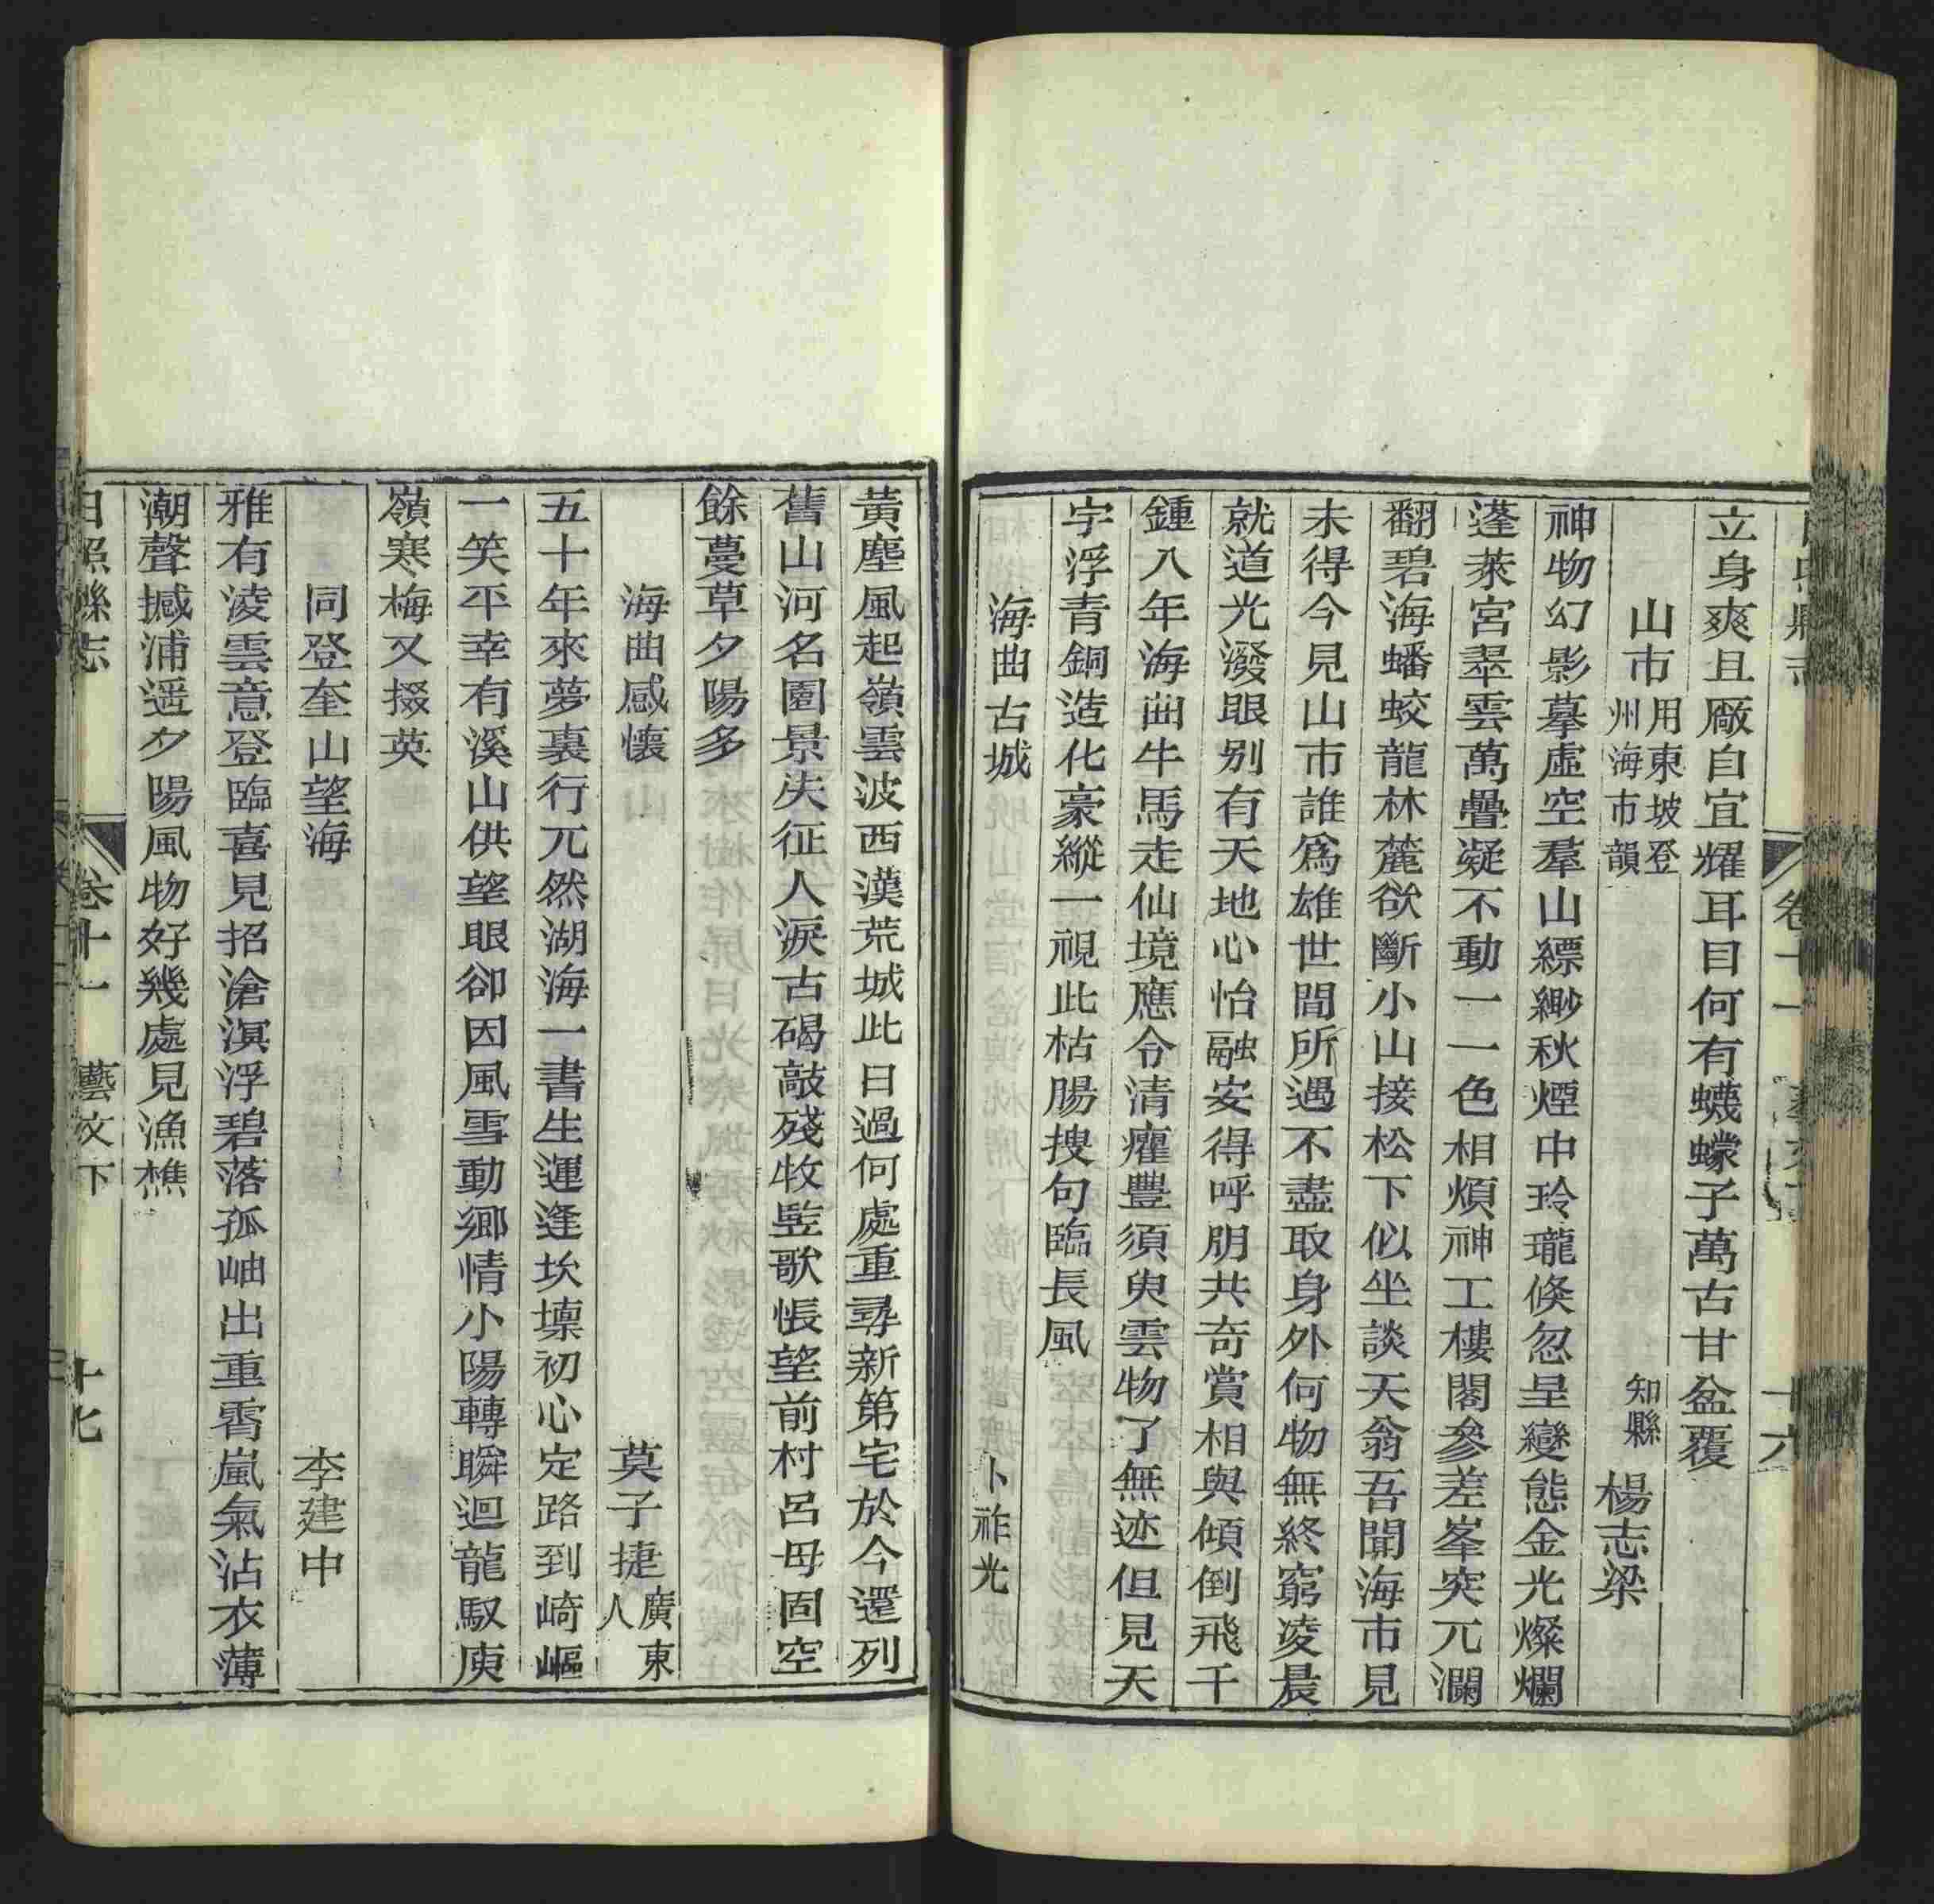 立身爽且厰自宜耀耳目何有蠛蠓子萬古甘盆覆
山市用東坡登州海市韻 知縣 楊志梁
神物幻影摹虛空羣山縹緲秋煙中玲瓏倏忽呈變態金光燦爛
蓬萊宮翠雲萬疊凝不動一一色相煩神工樓閣參差峯突兀瀾
翻碧海蟠蛟龍林麓欲斷小山接松下似坐談天翁吾聞海市見
未得今見山市誰爲雄世間所遇不盡取身外何物無終窮凌晨
就道光潑眼别有天地心怡融安得呼朋共奇賞相與傾倒飛千
鍾入年海曲牛馬走仙境應令清癯豐須臾雲物了無迹但見天
宇浮青銅造化豪縱一視此枯腸搜句臨長風
海曲古城 卜祚光
黃塵風起嶺雲波西漢荒城此日過何處重尋新第宅於今還列
舊山河名園景失征人淚古碣敲殘牧豎歌悵望前村呂母固空
餘蔓草夕陽多
海曲感懷 莫子捷廣東人
五十年來夢裏行兀然湖海一書生運逢坎壈初心定路到崎嶇
一笑平幸有溪山供望眼卻因風雪動鄉情小陽轉瞬迴龍馭庾
嶺寒梅又掇英
同登奎山望海 李建中
雅有淩雲意登臨喜見招滄溟浮碧落孤岫出重霄嵐氣沾衣薄
潮聲撼浦遥夕陽風物好幾處見漁樵
日照縣志 卷十一 藝文下 十七